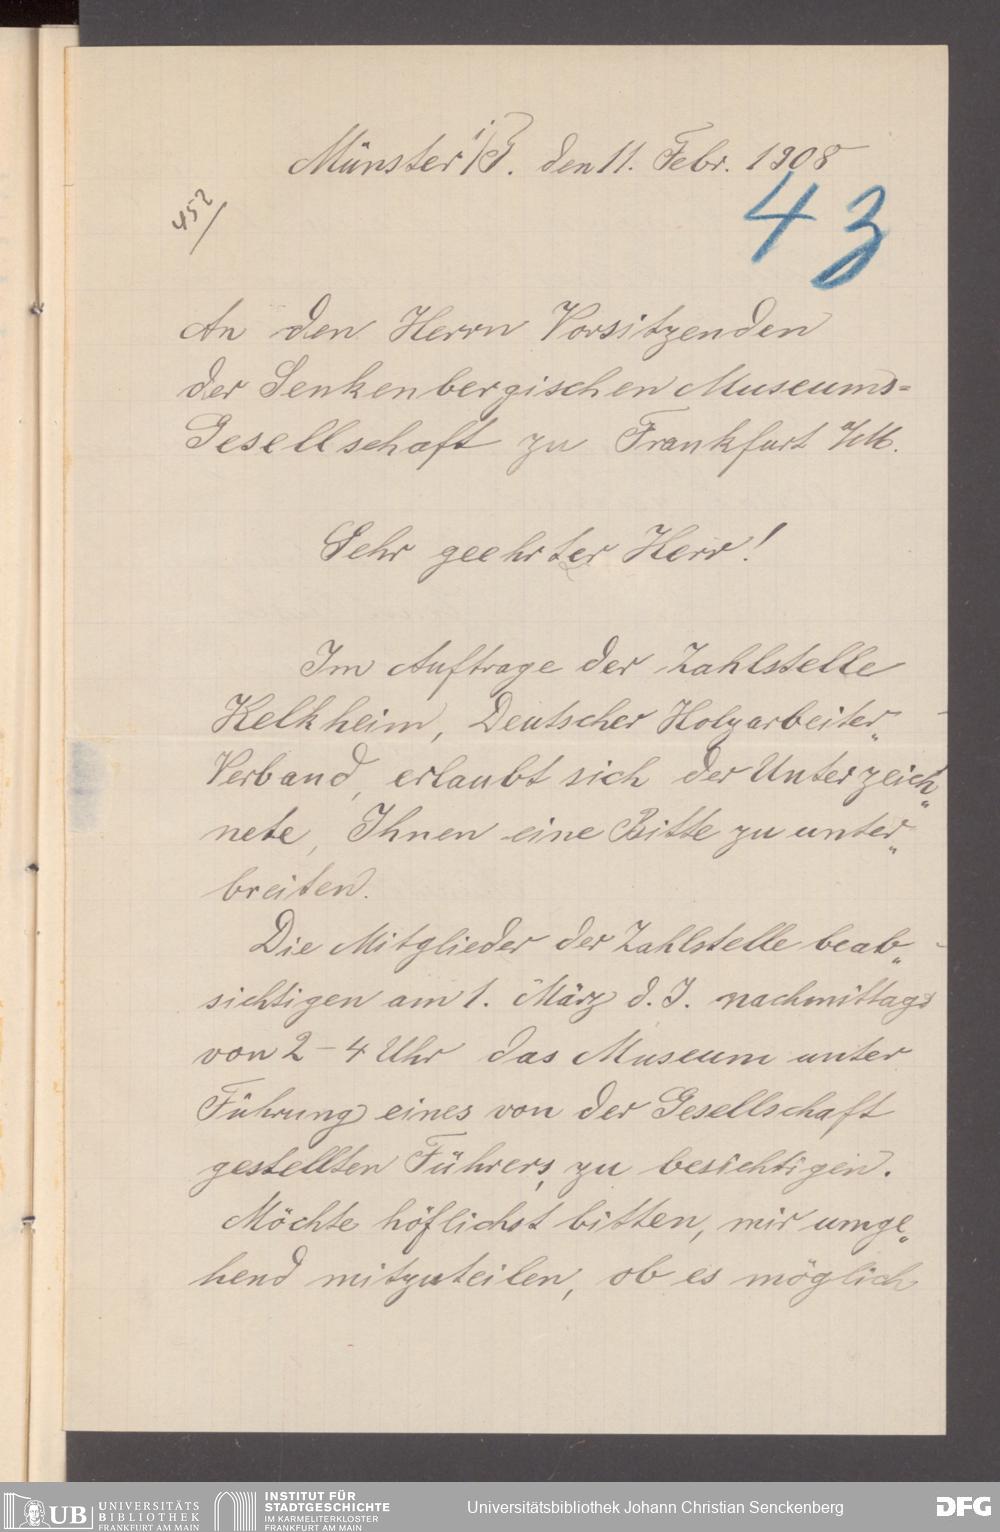 Münster i/T. den 11. Febr. 1908
452/
43
An den Herrn Vorsitzenden
der Senkenbergischen Museums=
Gesellschaft zu Frankfurt a/M.
Sehr geehrter Herr!
Im Auftrage der Zahlstelle
Kelkheim, Deutscher Holzarbeiter„
Verband, erlaubt sich der Unterzeich„
nete, Ihnen eine Bitte zu unter„
breiten.
Die Mitglieder der Zahlstelle beab„
sichtigen am 1. März d. J. nachmittags
von 2 – 4 Uhr das Museum unter
Führung eines von der Gesellschaft
gestellten Führers, zu besichtigen.
Möchte höflichst bitten, mir umge„
hend mitzuteilen, ob es möglich
UB UNIVERSITÄTS
BIBLIOTHEK
FRANKFURT AM MAIN
INSTITUT FÜR
STADTGESCHICHTE
IM KARMELITERKLOSTER
FRANKFURT AM MAIN
Universitätsbibliothek Johann Christian Senckenberg
DFG